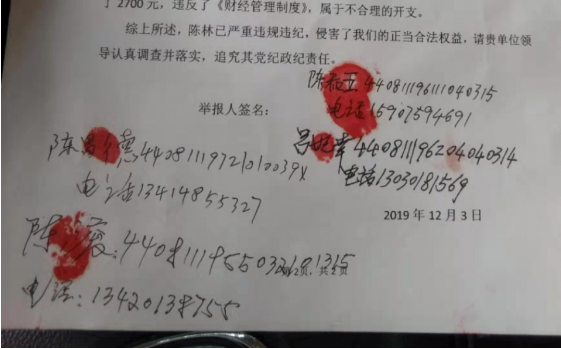 2700元，违反了《财经管理制度》，属于不合理的开支。
综上所述，陈林已严重违规违纪，侵害了我们的正当合法权益，请贵单位领
导认真调查并落实，追究其党纪政纪责任。
举报人签名：
陈 440811196111040315
电话15907594691
陈 德44081119721010039X
电话13414855327
吕 440811196204040314
电话13030181569
2019 年 12 月 3 日
陈
页，共2页
电话：13420138755